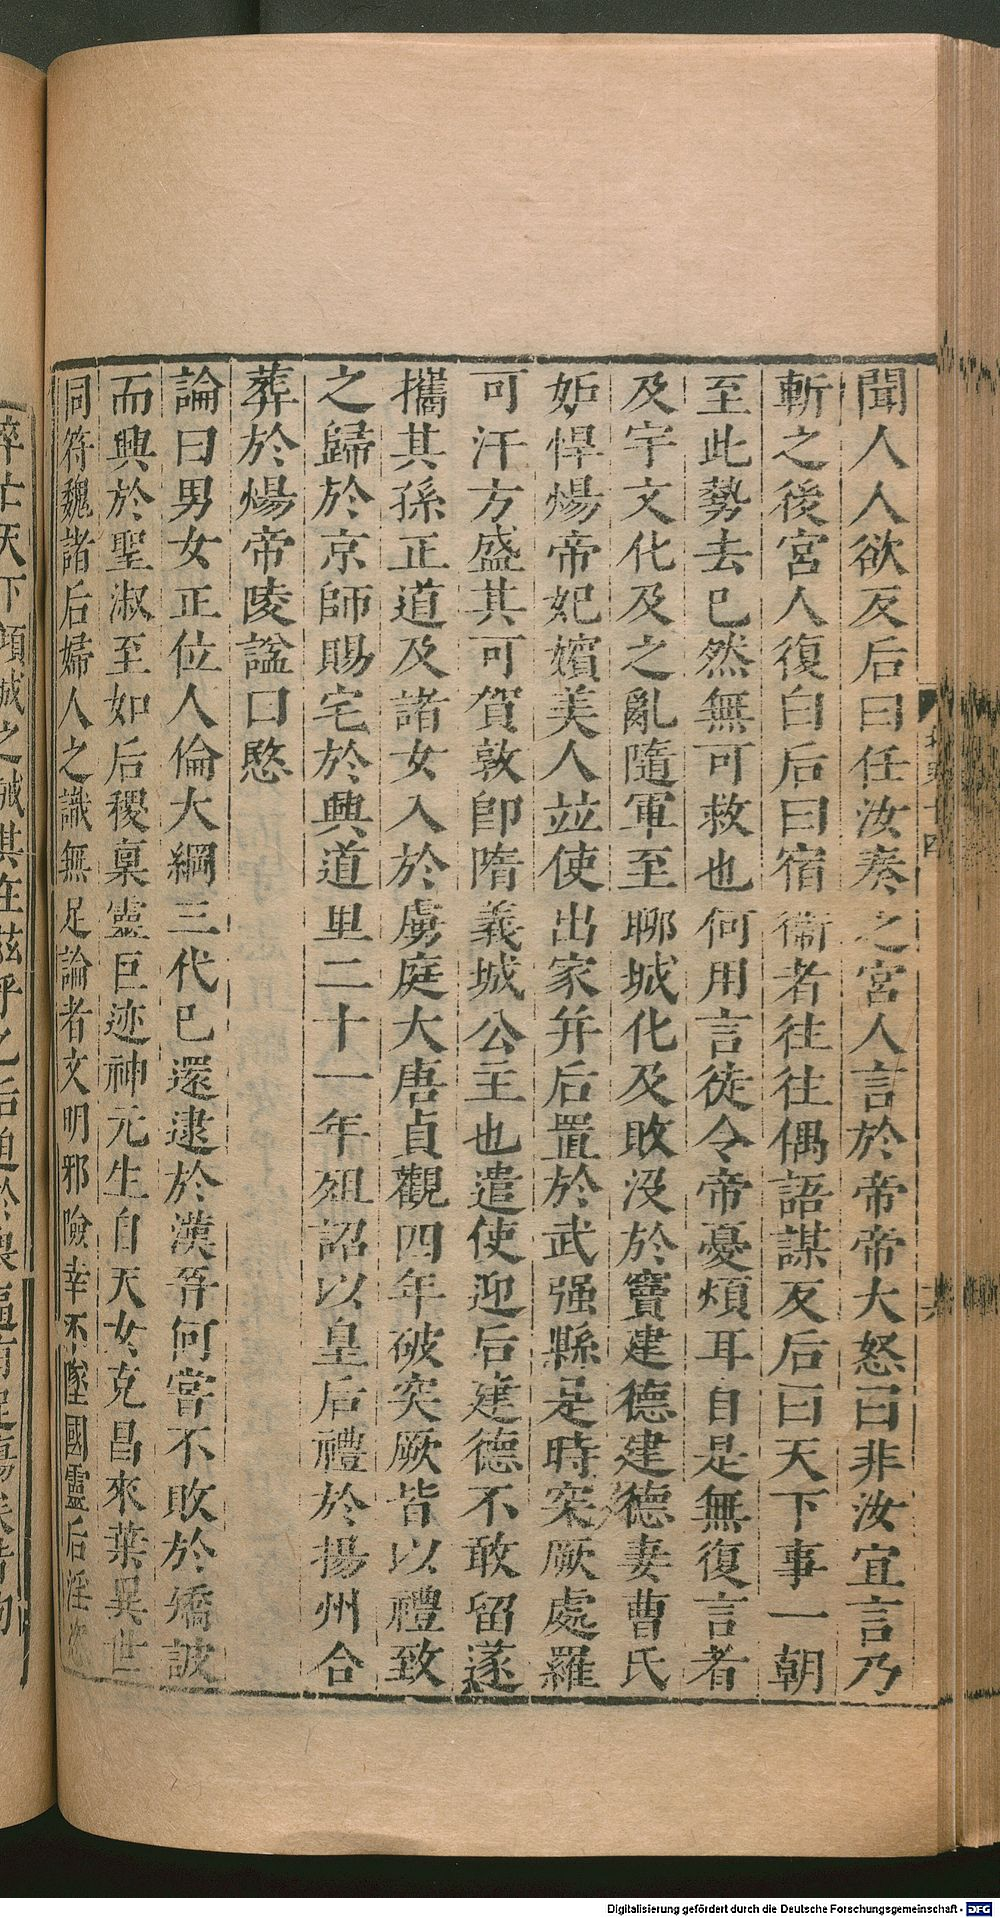 聞人人欲反后曰任汝奏之宮人言於帝帝大怒曰非汝宜言乃
斬之後宮人復白后曰宿衞者往往偶語謀反后曰天下事一朝
至此勢去已然無可救也何用言徒令帝憂煩耳自是無復言者
及宇文化及之亂隨軍至聊城化及敗没於竇建德建德妻曹氏
妒悍煬帝妃嬪美人並使出家并后置於武强縣是時突厥處羅
可汗方盛其可賀敦卽隋義城公主也遣使迎后建德不敢留遂
攜其孫正道及諸女入於虜庭大唐貞觀四年破突厥皆以禮致
之歸於京師賜宅於興道里二十一年殂詔以皇后禮於揚州合
葬於煬帝陵諡曰愍
論曰男女正位人倫大綱三代已還逮於漢晉何嘗不敗於矯詖
而興於聖淑至如后稷稟靈巨迹神元生自天女克昌來葉異世
同符魏諸后婦人之識無足論者文明邪險幸不墜國靈后淫恣
卒亡天下項城之誡其在茲乎
Digitalisierung gefördert durch die Deutsche Forschungsgemeinschaft - DFG